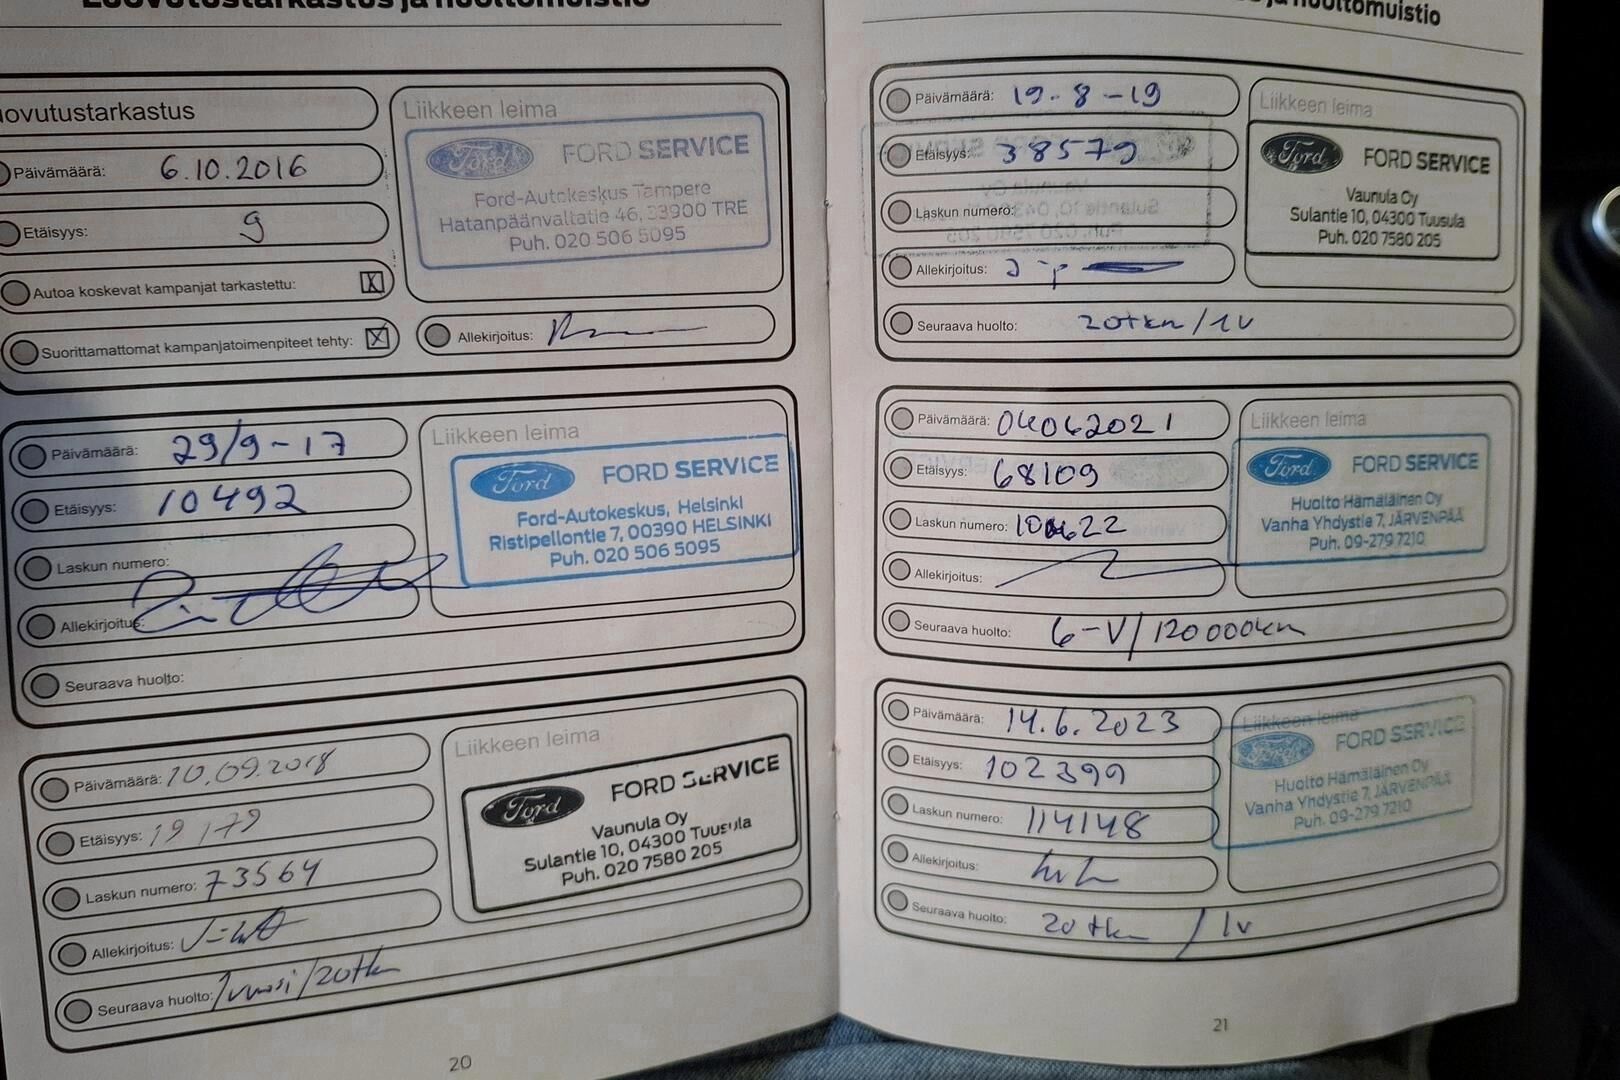 Luovutustarkastus ja huoltomuistio
ovutustarkastus
Päivämäärä: 6.10.2016
Etäisyys: 9
Autoa koskevat kampanjat tarkastettu: X
Suorittamattomat kampanjatoimenpiteet tehty: X
Liikkeen leima
Ford FORD SERVICE
Ford-Autokeskus Tampere
Hatanpäänvaltatie 46, 33900 TRE
Puh. 020 506 5095
Allekirjoitus:
Päivämäärä: 29/9-17
Etäisyys: 10492
Laskun numero:
Allekirjoitus:
Seuraava huolto:
Liikkeen leima
Ford FORD SERVICE
Ford-Autokeskus, Helsinki
Ristipellontie 7, 00390 HELSINKI
Puh. 020 506 5095
Päivämäärä: 10.09.2018
Etäisyys: 19179
Laskun numero: 73564
Allekirjoitus:
Seuraava huolto: 1vuosi/20tkm
Liikkeen leima
Ford FORD SERVICE
Vaunula Oy
Sulantie 10, 04300 Tuusula
Puh. 020 7580 205
20
ja huoltomuistio
Päivämäärä: 19-8-19
Etäisyys: 38579
Laskun numero:
Allekirjoitus:
Seuraava huolto: 20tkm/1v
Liikkeen leima
Ford FORD SERVICE
Vaunula Oy
Sulantie 10, 04300 Tuusula
Puh. 020 7580 205
Päivämäärä: 04062021
Etäisyys: 68109
Laskun numero:
Allekirjoitus:
Seuraava huolto: 6-V/120000km
Liikkeen leima
Ford FORD SERVICE
Huolto Hämäläinen Oy
Vanha Yhdystie 7, JÄRVENPÄÄ
Puh. 09-279 7210
Päivämäärä: 14.6.2023
Etäisyys: 102399
Laskun numero: 114148
Allekirjoitus:
Seuraava huolto: 20tkm / 1v
Liikkeen leima
Ford FORD SERVICE
Huolto Hämäläinen Oy
Vanha Yhdystie 7, JÄRVENPÄÄ
Puh. 09-279 7210
21